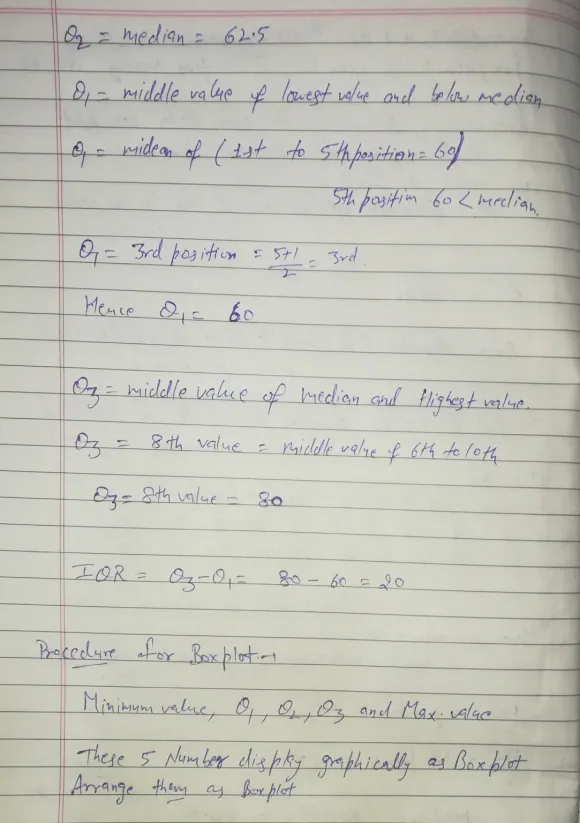 Q2 = median = 62.5
Q1 = middle value of lowest value and below median
Q1 = midean of (1st to 5th position = 60)
5th position 60 < median.
Q1 = 3rd position = 5+1/2 = 3rd.
Hence Q1 = 60
Q3 = middle value of median and Highest value.
Q3 = 8th value = middle value of 6th to 10th
Q3 = 8th value = 80
IQR = Q3 - Q1 = 80 - 60 = 20
Procedure for Boxplot →
Minimum value, Q1, Q2, Q3 and Max. value
These 5 Number display graphically as Boxplot
Arrange them as Boxplot